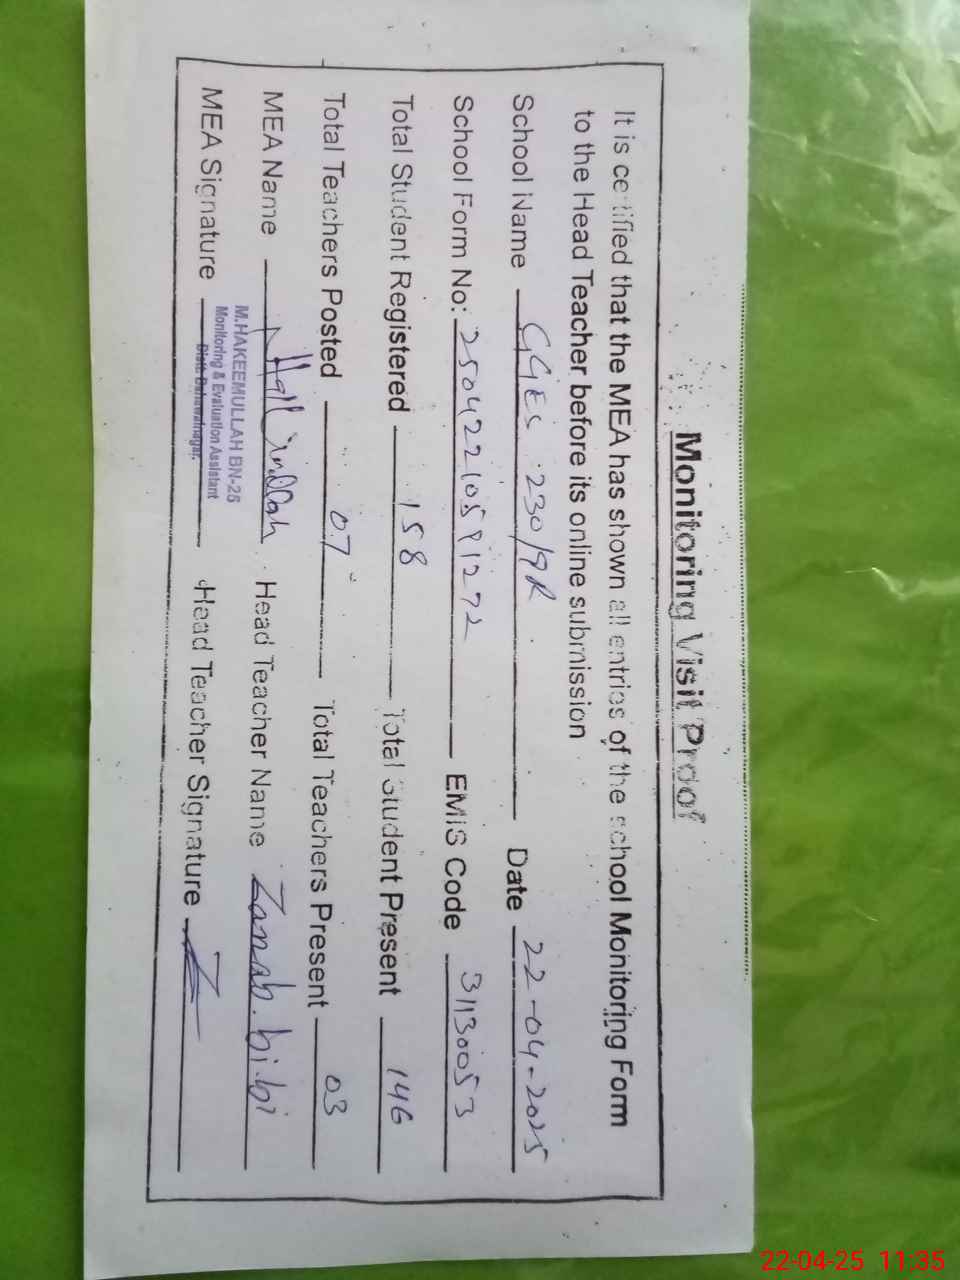 Monitoring Visit Proof
It is certified that the MEA has shown all entries of the school Monitoring Form
to the Head Teacher before its online submission
School Name GGES 230/9R Date 22-04-2025
School Form No: EMIS Code 31130053
Total Student Registered 158 Total Student Present 146
Total Teachers Posted 07 Total Teachers Present 03
MEA Name Head Teacher Name Zanab.bi.bi
M.HAKEEMULLAH BN-25
Monitoring & Evaluation Assistant
Distt. Bahawalnagar.
MEA Signature Head Teacher Signature
22-04-25 11:35